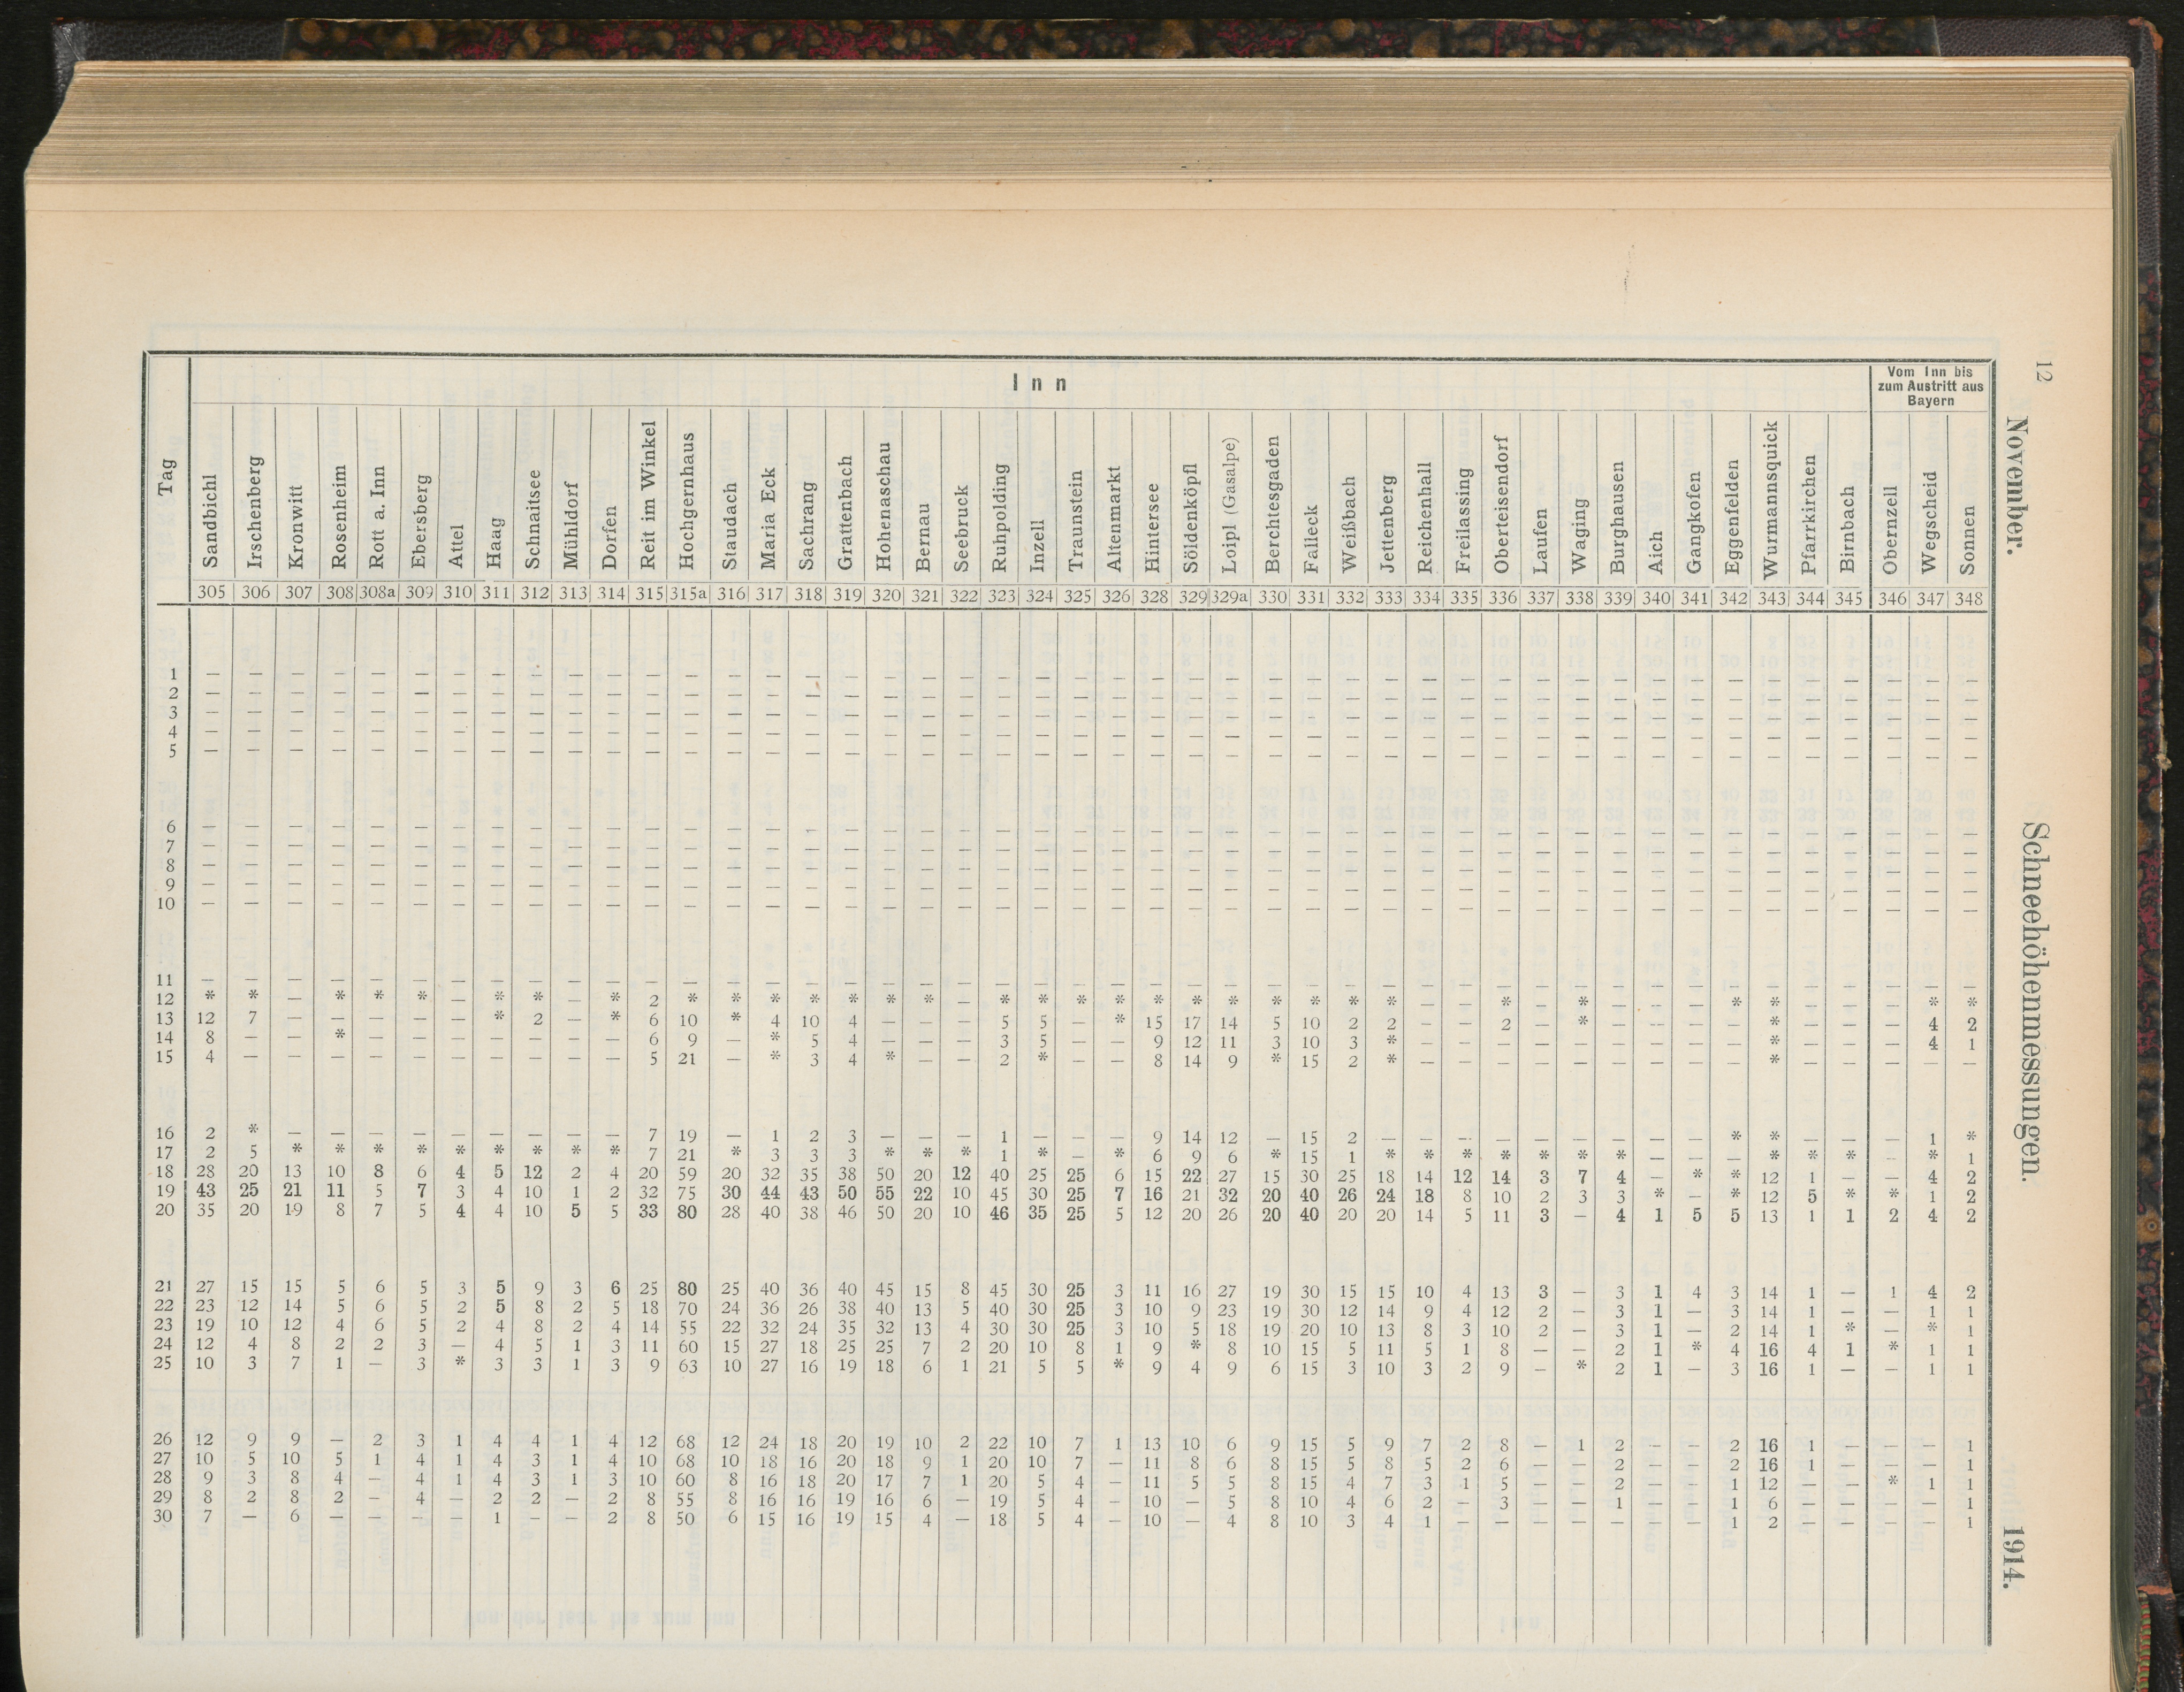 12
November.
Schneehöhenmessungen.
1914.
Tag
Inn
Vom Inn bis
zum Austritt aus
Bayern
Sandbichl Irschenberg Kronwitt Rosenheim Rott a. Inn Ebersberg Attel Haag Schnaitsee Mühldorf Dorfen Reit im Winkel Hochgernhaus Staudach Maria Eck Sachrang Grattenbach Hohenaschau Bernau Seebruck Ruhpolding Inzell Traunstein Altenmarkt Hintersee Söldenköpfl Loipl (Gasalpe) Berchtesgaden Falleck Weißbach Jettenberg Reichenhall Freilassing Oberteisendorf Laufen Waging Burghausen Aich Gangkofen Eggenfelden Wurmannsquick Pfarrkirchen Birnbach Obernzell Wegscheid Sonnen
305 306 307 308 308a 309 310 311 312 313 314 315 315a 316 317 318 319 320 321 322 323 324 325 326 328 329 329a 330 331 332 333 334 335 336 337 338 339 340 341 342 343 344 345 346 347 348
1 — — — — — — — — — — — — — — — — — — — — — — — — — — — — — — — — — — — — — — — — — — — — — —
2 — — — — — — — — — — — — — — — — — — — — — — — — — — — — — — — — — — — — — — — — — — — — — —
3 — — — — — — — — — — — — — — — — — — — — — — — — — — — — — — — — — — — — — — — — — — — — — —
4 — — — — — — — — — — — — — — — — — — — — — — — — — — — — — — — — — — — — — — — — — — — — — —
5 — — — — — — — — — — — — — — — — — — — — — — — — — — — — — — — — — — — — — — — — — — — — — —
6 — — — — — — — — — — — — — — — — — — — — — — — — — — — — — — — — — — — — — — — — — — — — — —
7 — — — — — — — — — — — — — — — — — — — — — — — — — — — — — — — — — — — — — — — — — — — — — —
8 — — — — — — — — — — — — — — — — — — — — — — — — — — — — — — — — — — — — — — — — — — — — — —
9 — — — — — — — — — — — — — — — — — — — — — — — — — — — — — — — — — — — — — — — — — — — — — —
10 — — — — — — — — — — — — — — — — — — — — — — — — — — — — — — — — — — — — — — — — — — — — — —
11 — — — — — — — — — — — — — — — — — — — — — — — — — — — — — — — — — — — — — — — — — — — — — —
12 * * — * * * — * * — * 2 * * * * * * * — * * * * * * * * * * * — — * — * — — — * * — — — * *
13 12 7 — — — — — * 2 — * 6 10 * 4 10 4 — — — 5 5 — * 15 17 14 5 10 2 2 — — 2 — * — — — — * — — — 4 2
14 8 — — * — — — — — — — 6 9 — * 5 4 — — — 3 5 — — 9 12 11 3 10 3 * — — — — — — — — — * — — — 4 1
15 4 — — — — — — — — — — 5 21 — * 3 4 * — — 2 * — — 8 14 9 * 15 2 * — — — — — — — — — * — — — — —
16 2 * — — — — — — — — — 7 19 — 1 2 3 — — — 1 — — — 9 14 12 — 15 2 — — — — — — — — — * * — — — 1 *
17 2 5 * * * * * * * * * 7 21 * 3 3 3 * * * 1 * — * 6 9 6 * 15 1 * * * * * * * — — — * * * — * 1
18 28 20 13 10 8 6 4 5 12 2 4 20 59 20 32 35 38 50 20 12 40 25 25 6 15 22 27 15 30 25 18 14 12 14 3 7 4 — * * 12 1 — — 4 2
19 43 25 21 11 5 7 3 4 10 1 2 32 75 30 44 43 50 55 22 10 45 30 25 7 16 21 32 20 40 26 24 18 8 10 2 3 3 * — * 12 5 * * 1 2
20 35 20 19 8 7 5 4 4 10 5 5 33 80 28 40 38 46 50 20 10 46 35 25 5 12 20 26 20 40 20 20 14 5 11 3 — 4 1 5 5 13 1 1 2 4 2
21 27 15 15 5 6 5 3 5 9 3 6 25 80 25 40 36 40 45 15 8 45 30 25 3 11 16 27 19 30 15 15 10 4 13 3 — 3 1 4 3 14 1 — 1 4 2
22 23 12 14 5 6 5 2 5 8 2 5 18 70 24 36 26 38 40 13 5 40 30 25 3 10 9 23 19 30 12 14 9 4 12 2 — 3 1 — 3 14 1 — — 1 1
23 19 10 12 4 6 5 2 4 8 2 4 14 55 22 32 24 35 32 13 4 30 30 25 3 10 5 18 19 20 10 13 8 3 10 2 — 3 1 — 2 14 1 * — * 1
24 12 4 8 2 2 3 — 4 5 1 3 11 60 15 27 18 25 25 7 2 20 10 8 1 9 * 8 10 15 5 11 5 1 8 — — 2 1 * 4 16 4 1 * 1 1
25 10 3 7 1 — 3 * 3 3 1 3 9 63 10 27 16 19 18 6 1 21 5 5 * 9 4 9 6 15 3 10 3 2 9 — * 2 1 — 3 16 1 — — 1 1
26 12 9 9 — 2 3 1 4 4 1 4 12 68 12 24 18 20 19 10 2 22 10 7 1 13 10 6 9 15 5 9 7 2 8 — 1 2 — — 2 16 1 — — — 1
27 10 5 10 5 1 4 1 4 3 1 4 10 68 10 18 16 20 18 9 1 20 10 7 — 11 8 6 8 15 5 8 5 2 6 — — 2 — — 2 16 1 — — — 1
28 9 3 8 4 — 4 1 4 3 1 3 10 60 8 16 18 20 17 7 1 20 5 4 — 11 5 5 8 15 4 7 3 1 5 — — 2 — — 1 12 — — * 1 1
29 8 2 8 2 — 4 — 2 2 — 2 8 55 8 16 16 19 16 6 — 19 5 4 — 10 — 5 8 10 4 6 2 — 3 — — 1 — — 1 6 — — — — 1
30 7 — 6 — — — — 1 — — 2 8 50 6 15 16 19 15 4 — 18 5 4 — 10 — 4 8 10 3 4 1 — — — — — — — 1 2 — — — — 1